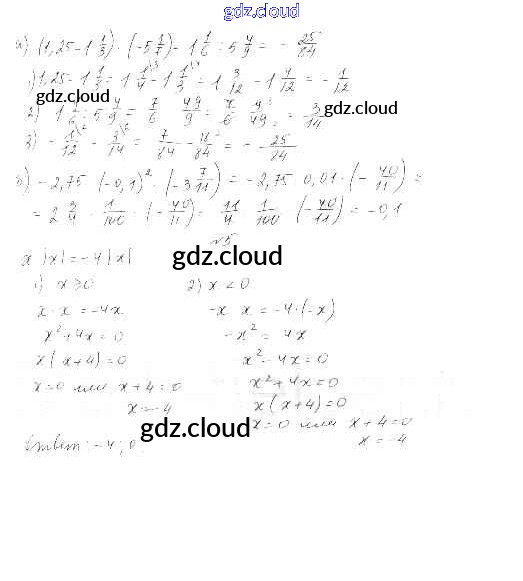 gdz.cloud
а) (1,25-1 1/3) · (-5 1/7) - 1 1/6 : 5 4/9 = - 25/84
1) 1,25 - 1 1/3 = 1 1/4 - 1 1/3 = 1 3/12 - 1 4/12 = - 1/12
gdz.cloud gdz.cloud
2) 1 1/6 : 5 4/9 = 7/6 : 49/9 = 7/6 · 9/49 = 3/14
3) - 1/12 - 3/14 = - 7/84 - 18/84 = - 25/84
б) -2,75 (-0,1)² · (-3 7/11) = -2,75 0,01 · (- 40/11) =
= 2 3/4 · 1/100 · (- 40/11) = 11/4 1/100 (- 40/11) = -0,1
№5
x |x| = -4|x| gdz.cloud
1) x ⩾ 0 2) x < 0
x · x = -4x -x x = -4 · (-x)
x² + 4x = 0 -x² = 4x
x(x+4) = 0 x² - 4x = 0
x=0 или x+4=0 x² + 4x = 0
x = -4 x(x+4) = 0
gdz.cloud x=0 или x+4=0
Ответ: -4; 0. x = -4